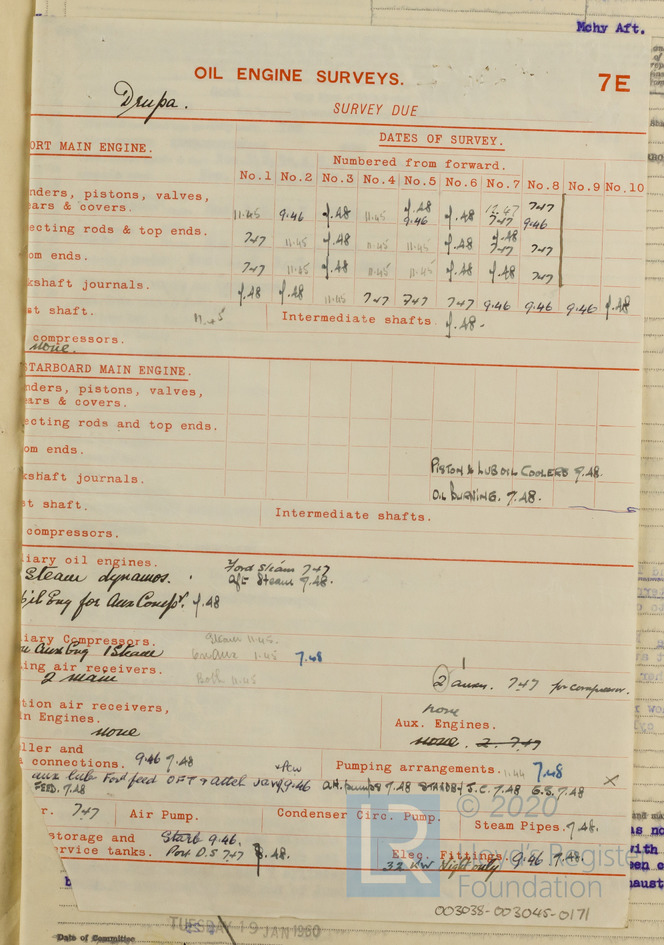 Mchy Aft.
OIL ENGINE SURVEYS.
7E
Drupa.
SURVEY DUE
DATES OF SURVEY.
ORT MAIN ENGINE.
Numbered from forward.
No.1 No.2 No.3 No.4 No.5 No.6 No.7 No.8 No.9 No.10
nders, pistons, valves,
ars & covers.
11.45 9.46 7.48 11.45 7.48 9.46 7.48 12.47 7+7 7+7 9.46
ecting rods & top ends.
7+7 11.45 7.48 11.45 11.45 7.48 7.48 7+7 7+7
om ends.
7+7 11.45 7.48 11.45 11.45 7.48 7.48 7+7
kshaft journals.
7.48 7.48 11.45 7+7 7+7 7+7 9.46 9.46 9.46 7.48
st shaft.
11.45
Intermediate shafts.
7.48.
compressors.
none.
STARBOARD MAIN ENGINE.
nders, pistons, valves,
ars & covers.
ecting rods and top ends.
om ends.
PISTON & LUB OIL COOLERS 7.48.
kshaft journals.
OIL BURNING. 7.48.
st shaft.
Intermediate shafts.
compressors.
iary oil engines.
Ford Steam 7+7
Steam dynamos.
aft Steam 7.48.
oil Eng for Aux Compr. 7.48
iary Compressors.
Steam 11.45.
Aux Eng 1 Steam
11.45
7.48
ing air receivers.
2 main
Both 11.45
2 auxn. 7+7 for compressor.
tion air receivers,
in Engines.
none
none
Aux. Engines.
none. 2. 7+7
ller and
connections.
9.46 7.48
Pumping arrangements.
11.44
7.48
aux lub Ford feed OFT
9.46
O.H. pumps 7.48 STANDBY J.C. 7.48 G.S. 7.48
FEED. 7.48
r. 7+7
Air Pump.
Condenser Circ. Pump.
Steam Pipes.
7.48.
storage and
ervice tanks.
Starb 9.46.
Port D.S 7+7
7.48.
Elec. Fittings
9.46 7.48.
32 KW Night only
LR
© 2020
Lloyd's Register
Foundation
003038-003045-0171
TUESDAY 19 JAN 1960
Date of Committee